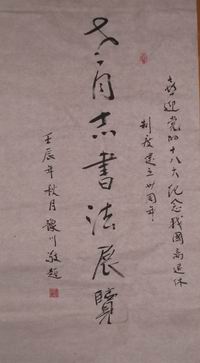 喜迎党的十八大纪念我國离退休
制度建立卅周年
老同志書法展覽
壬辰年秋月 豫川敬題